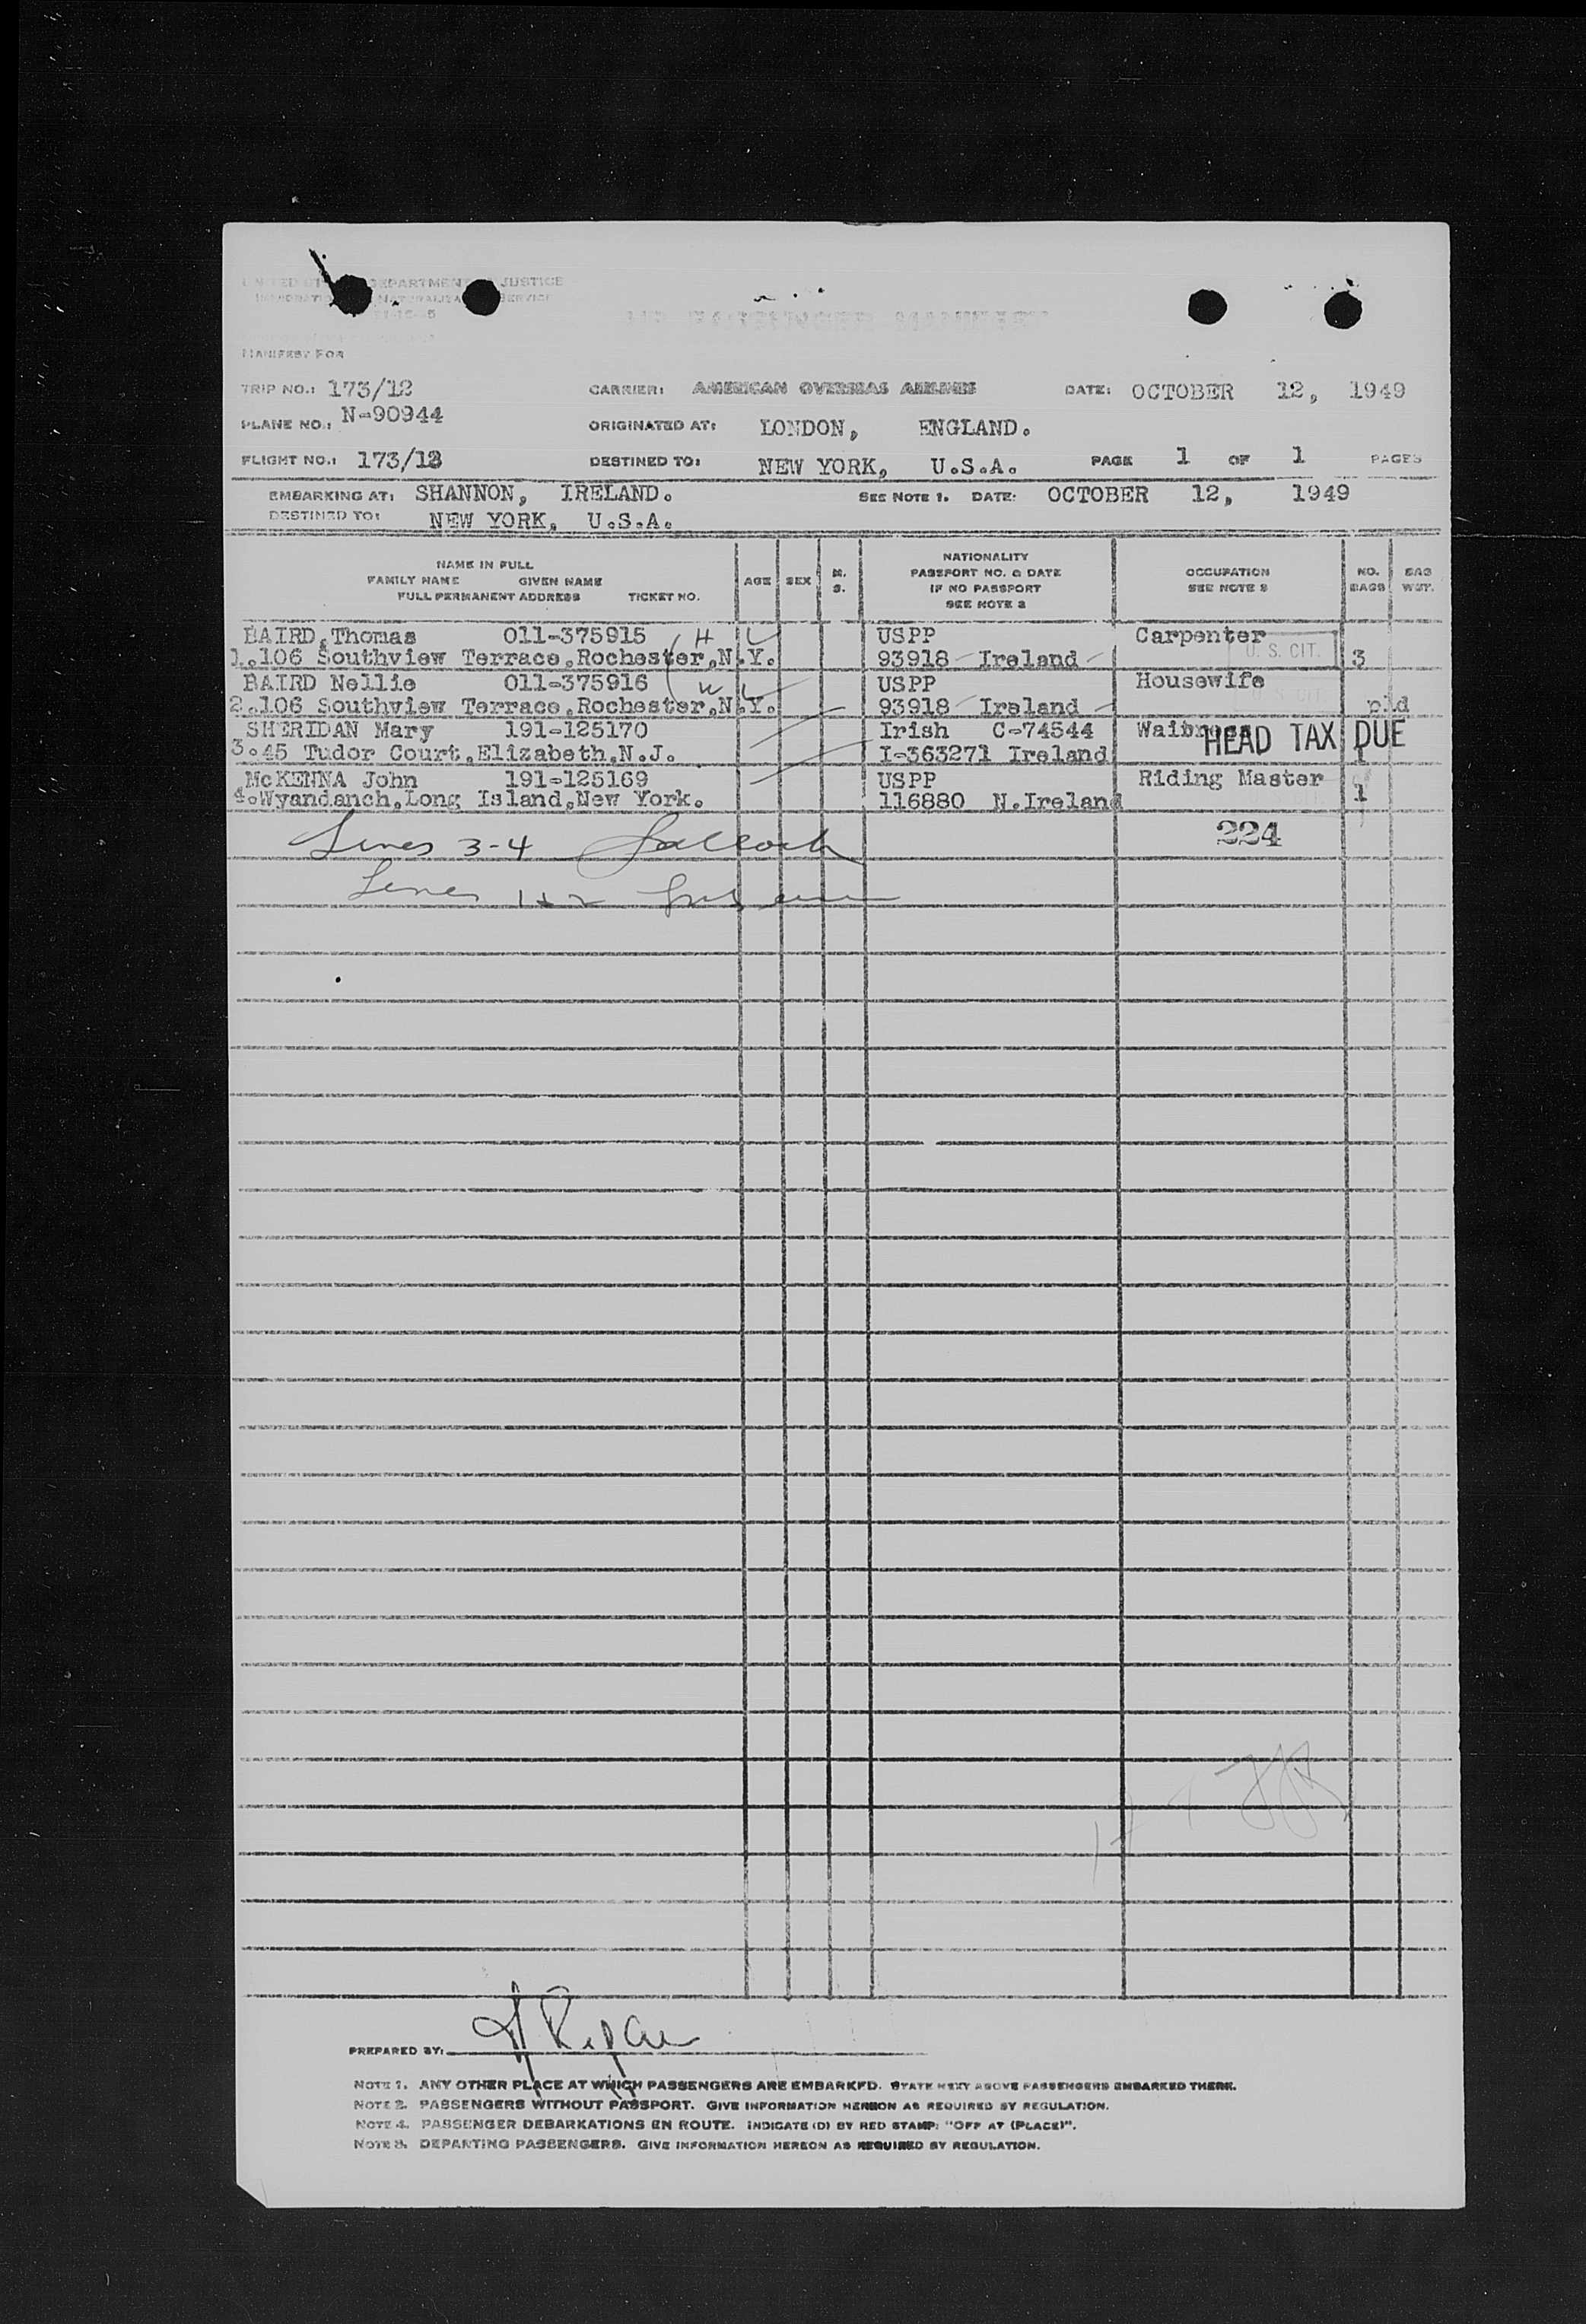 DEPARTMENT JUSTICE
SERVICE
AIR PASSENGER MANIFEST
MANIFEST FOR
TRIP NO.: 173/12 CARRIER: AMERICAN OVERSEAS AIRLINES DATE: OCTOBER 12, 1949
PLANE NO.: N-90944 ORIGINATED AT: LONDON, ENGLAND.
FLIGHT NO.: 173/12 DESTINED TO: NEW YORK, U.S.A. PAGE 1 OF 1 PAGES
EMBARKING AT: SHANNON, IRELAND. SEE NOTE 1. DATE: OCTOBER 12, 1949
DESTINED TO: NEW YORK, U.S.A.
NAME IN FULL
FAMILY NAME GIVEN NAME
FULL PERMANENT ADDRESS TICKET NO.
AGE SEX M. S.
NATIONALITY
PASSPORT NO. & DATE
IF NO PASSPORT
SEE NOTE 2
OCCUPATION
SEE NOTE 3
NO. BAGS
BAG WGT.
BAIRD, Thomas 011-375915 H USPP Carpenter
1. 106 Southview Terrace, Rochester, N.Y. 93918 Ireland U. S. CIT. 3
BAIRD Nellie 011-375916 W USPP Housewife
2. 106 Southview Terrace, Rochester, N.Y. 93918 Ireland U. S. CIT.
SHERIDAN Mary 191-125170 Irish C-74544 HEAD TAX DUE
3. 45 Tudor Court, Elizabeth, N.J. I-363271 Ireland 1
McKENNA John 191-125169 USPP Riding Master
4. Wyandanch, Long Island, New York. 116880 N.Ireland 1
224
Lines 3-4
Lines 1+2
PREPARED BY:
NOTE 1. ANY OTHER PLACE AT WHICH PASSENGERS ARE EMBARKED. STATE NEXT ABOVE PASSENGERS EMBARKED THERE.
NOTE 2. PASSENGERS WITHOUT PASSPORT. GIVE INFORMATION HEREON AS REQUIRED BY REGULATION.
NOTE 4. PASSENGER DEBARKATIONS EN ROUTE. INDICATE (D) BY RED STAMP: "OFF AT (PLACE)".
NOTE 3. DEPARTING PASSENGERS. GIVE INFORMATION HEREON AS REQUIRED BY REGULATION.